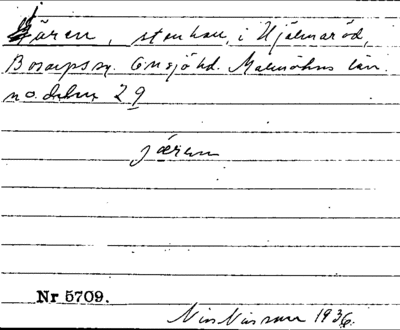 Jären, stenhau, i Hjälmaröd,
Bosarpssn. Onsjö hd. Malmöhus län.
no. delen 29
jären
Nr 5709.
Nils Nilsson 1936.